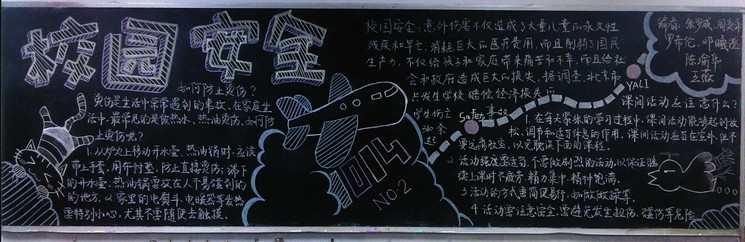 校园安全
如何防止烫伤?
烫伤是生活中常常遇到的事故.在家庭生
活中,最常见的是被热水、热油烫伤.如何防
止烫伤呢?
1.从炉火上移动开水壶、热油锅时,应该
带上手套,用布衬垫,防止直接烫伤;端下
的开水壶、热油锅要放在人不易碰到的
的地方.2.家里的电熨斗、电暖器等发热
要特别小心,尤其不要随便去触摸.
1014
No.2
校园安全,意外伤害不仅造成了大量儿童的永久性
残疾和早亡,消耗巨大的医疗费用,而且削弱了国民
生产力.不仅给孩子和家庭带来痛苦和不幸,而且给社
会和政府造成巨大的损失.据调查,北京市
学生的
余
起
Safety
YALI
罗希伦 邓曦
陈俞华
课间活动应注意什么?
1.在每天紧张的学习过程中,课间活动能够起到放
松、调节和适当休息的作用.课间活动应当在室外,但不
要远离教室,以免耽误下面的课程.
2.活动强度要适当,不要做剧烈的活动,以保证继
续上课时不疲劳、精力集中、精神饱满.
3.活动的方式要简便易行,如做做操等.
4.活动要注意安全,要避免发生扭伤、碰伤等危险